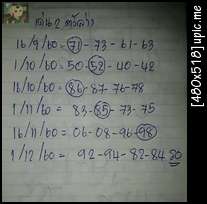 เด่น 2 ตัวล่าง
16/9/60 = 71 - 73 - 61 - 63
1/10/60 = 50 - 52 - 40 - 42
16/10/60 = 86 - 87 - 76 - 78
1/11/60 = 83 - 85 - 73 - 75
16/11/60 = 06 - 08 - 96 - 98
1/12/60 = 92 - 94 - 82 - 84 80
[480x518]upic.me